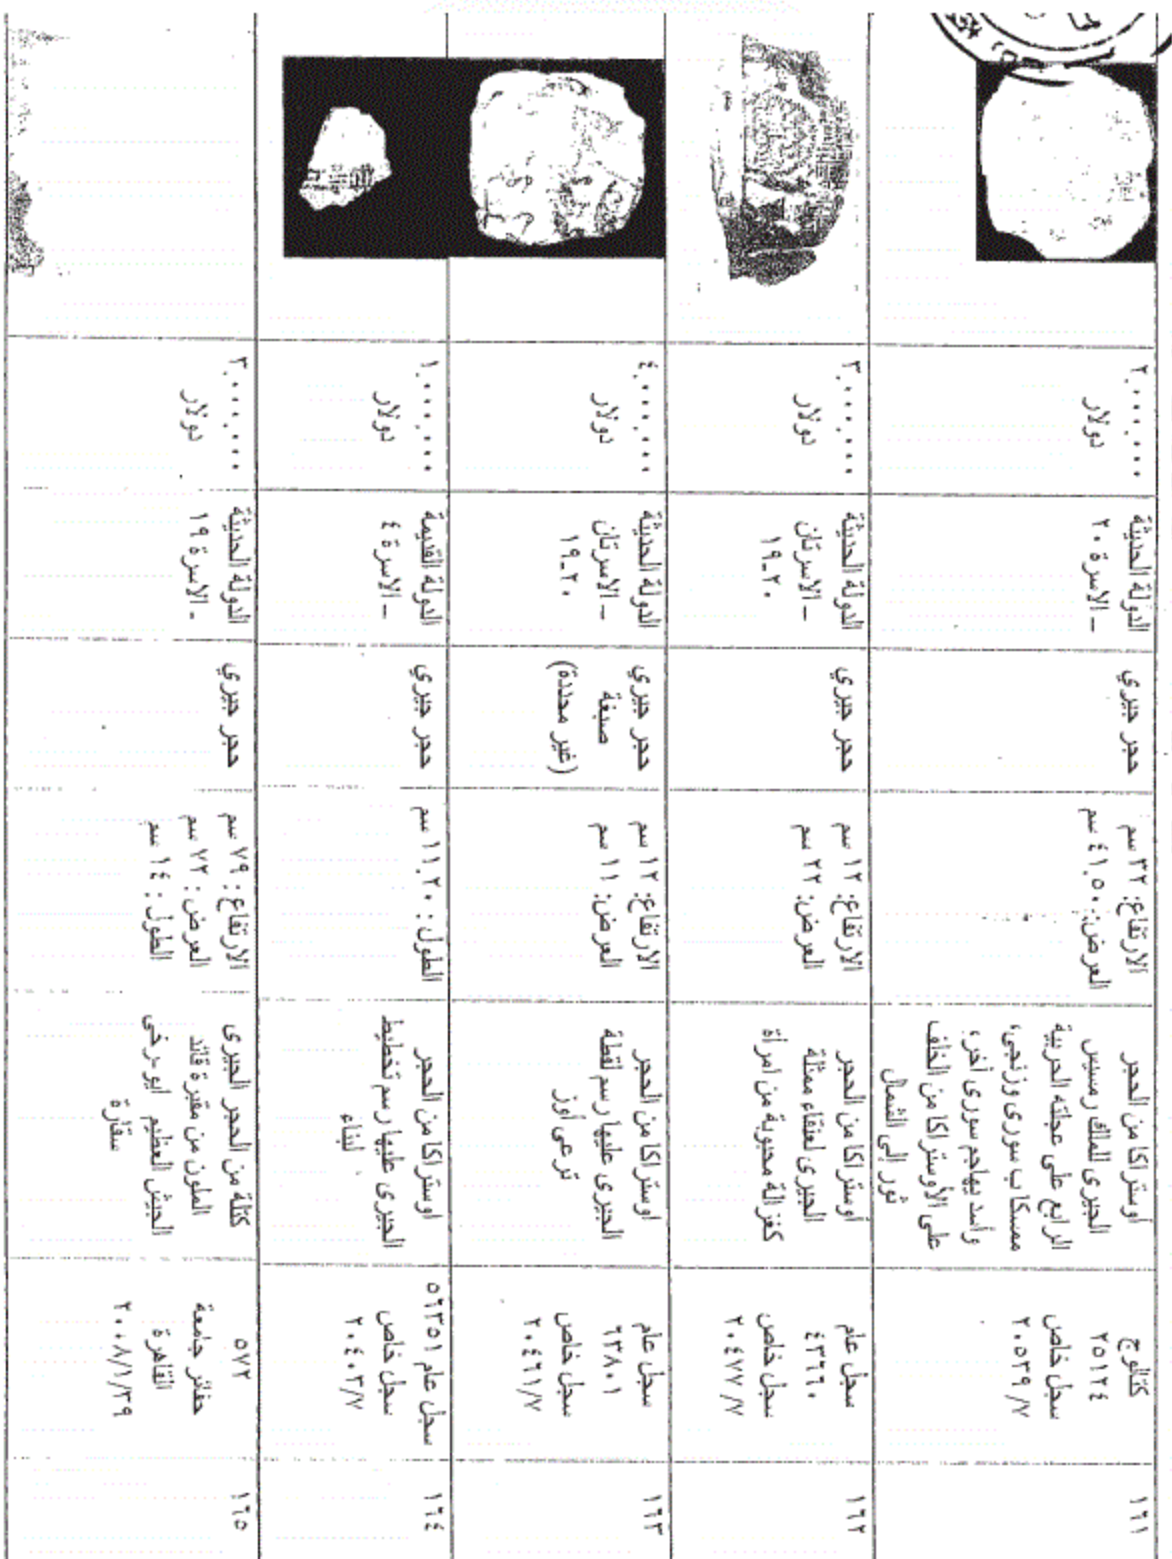 ١٦١
كتالوج
٢٥١٢٤
سجل خاص
٢٠٥٣٩/٧
أوستراكا من الحجر
الجيرى للملك رمسيس
الرابع على عجلته الحربية
ممسكا ب سورى وزنجى،
وأسد يهاجم سورى آخر،
على الأوستراكا من الخلف
ثور إلى الشمال
الارتفاع: ٣٢ سم
العرض: ٤١.٥٠ سم
حجر جيري
الدولة الحديثة
– الاسرة ٢٠
٢.٠٠٠.٠٠٠
دولار
١٦٢
سجل عام
٤٣٦٦٠
سجل خاص
٢٠٤٧٧/٧
أوستراكا من الحجر
الجيرى لعنقاء ممثلة
كغزالة محبوبة من امرأة
الارتفاع: ١٢ سم
العرض: ٢٢ سم
حجر جيري
الدولة الحديثة
– الاسرتان
١٩-٢٠
٣.٠٠٠.٠٠٠
دولار
١٦٣
سجل عام
٦٣٨٠١
سجل خاص
٢٠٤٦١/٧
اوستراكا من الحجر
الجيرى عليها رسم لقطة
ترعى أوز
الارتفاع: ١٢ سم
العرض: ١١ سم
حجر جيري
صبغة
(غير محددة)
الدولة الحديثة
– الاسرتان
١٩-٢٠
٤.٠٠٠.٠٠٠
دولار
١٦٤
سجل عام ٥٦٣٥١
سجل خاص
٢٠٤٠٣/٧
اوستراكا من الحجر
الجيرى عليها رسم تخطيط
لبناء
الطول: ١١.٢٠ سم
حجر جيري
الدولة القديمة
– الاسرة ٤
١.٠٠٠.٠٠٠
دولار
١٦٥
٥٧٢
حفائر جامعة
القاهرة
٢٠٠٨/١/٣٩
كتلة من الحجر الجيرى
الملون من مقبرة قائد
الجيش العظيم ايو-رخى
سقارة
الارتفاع: ٧٩ سم
العرض: ٧٢ سم
الطول: ١٤ سم
حجر جيري
الدولة الحديثة
- الاسرة ١٩
٢.٠٠٠.٠٠٠
دولار